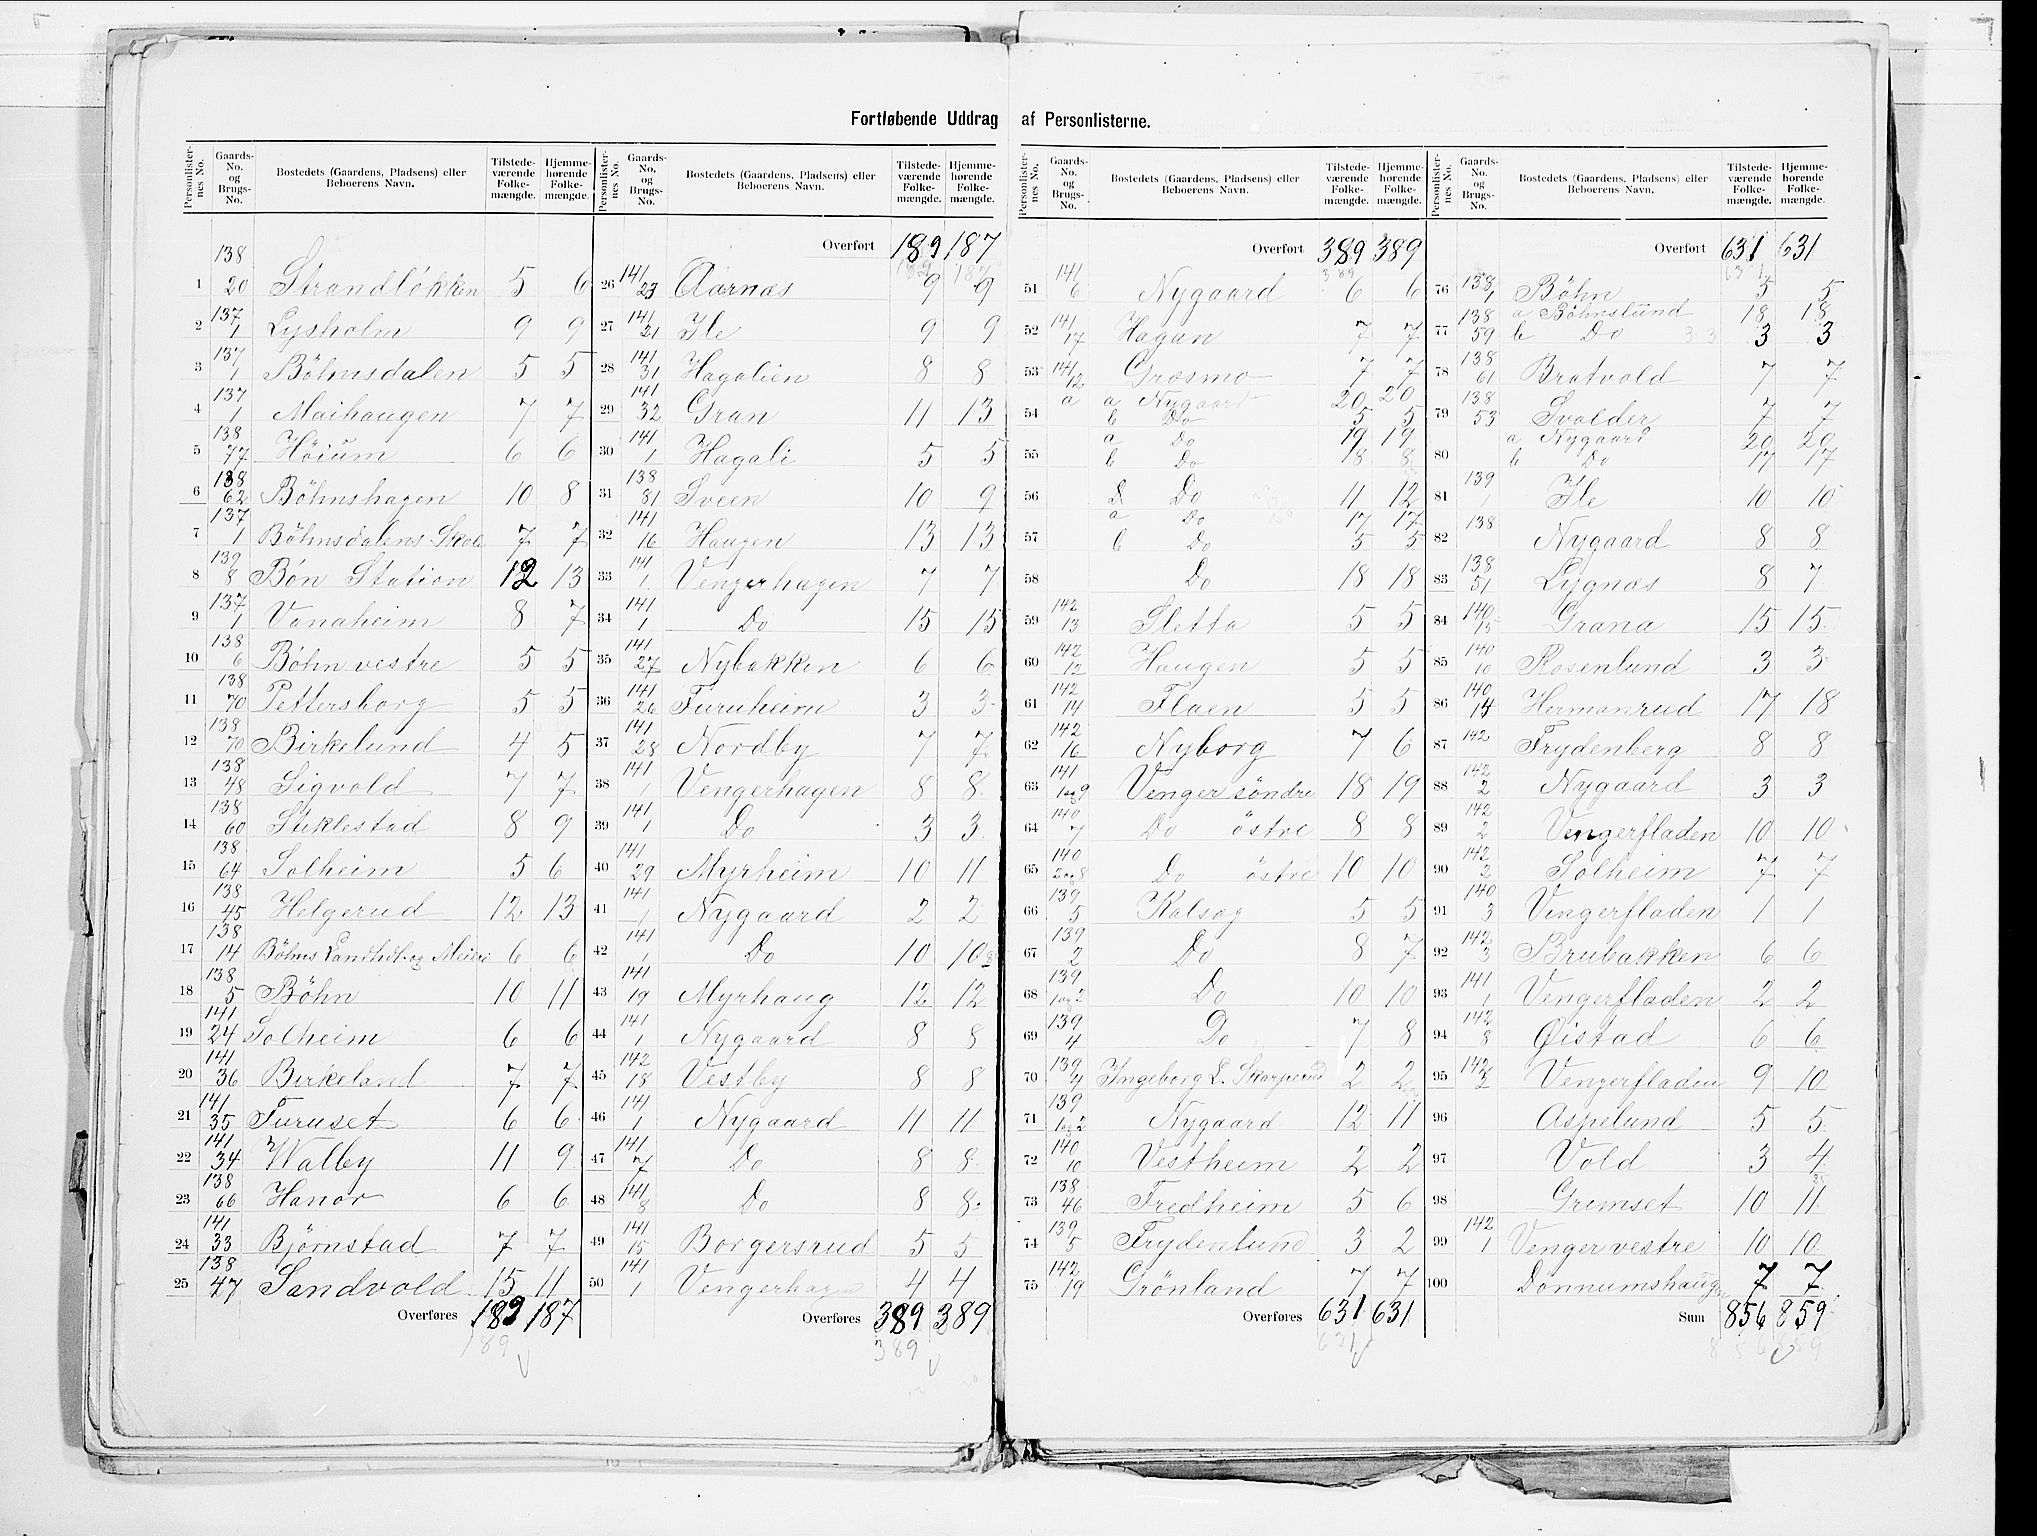 Fortløbende Uddrag af Personlisterne.
Personlister-nes No. Gaards-No. og Brugs-No. Bostedets (Gaardens, Pladsens) eller Beboerens Navn. Tilstede-værende Folke-mængde. Hjemme-hørende Folke-mængde.
1 138/20 Strandløkken 5 6
2 137/1 Lysholm 9 9
3 137/1 Böhnsdalen 5 5
4 137/1 Maihaugen 7 7
5 138/77 Höium 6 6
6 138/62 Böhnshagen 10 8
7 137/1 Böhnsdalens Skole 7 7
8 139/8 Bön Station 12 13
9 137/1 Vanaheim 8 7
10 138/6 Böhn vestre 5 5
11 138/70 Pettersborg 5 5
12 138/70 Birkelund 4 5
13 138/48 Sigvold 7 7
14 138/60 Stiklestad 8 9
15 138/64 Solheim 5 6
16 138/45 Helgerud 12 13
17 138/14 Böhns Landhdl. og Meieri 6 6
18 138/5 Böhn 10 11
19 141/24 Solheim 6 6
20 141/36 Birkeland 7 7
21 141/35 Furuset 6 6
22 141/34 Walby 11 9
23 138/66 Hanor 6 6
24 141/33 Bjørnstad 7 7
25 138/47 Sandvold 15 11
Overføres 189 187
189
Personlister-nes No. Gaards-No. og Brugs-No. Bostedets (Gaardens, Pladsens) eller Beboerens Navn. Tilstede-værende Folke-mængde. Hjemme-hørende Folke-mængde.
Overført 189 187
189 187
26 141/23 Aarnæs 9 9
27 141/21 Ile 9 9
28 141/31 Hagalien 8 8
29 141/32 Gran 11 13
30 141/1 Hagali 5 5
31 138/81 Sveen 10 9
32 141/16 Haugen 13 13
33 141/1 Vengerhagen 7 7
34 141/1 Do 15 15
35 141/27 Nybakken 6 6
36 141/26 Furuheim 3 3
37 141/28 Nordby 7 7
38 141/1 Vengerhagen 8 8
39 141/1 Do 3 3
40 141/29 Myrheim 10 11
41 141/1 Nygaard 2 2
42 141/1 Do 10 10
43 141/19 Myrhaug 12 12
44 141/1 Nygaard 8 8
45 142/18 Vestby 8 8
46 141/1 Nygaard 11 11
47 141/7 Do 8 8
48 141/8 Do 8 8
49 141/15 Borgersrud 5 5
50 141/1 Vengerhagen 4 4
Overføres 389 389
389
Personlister-nes No. Gaards-No. og Brugs-No. Bostedets (Gaardens, Pladsens) eller Beboerens Navn. Tilstede-værende Folke-mængde. Hjemme-hørende Folke-mængde.
Overført 389 389
389
51 141/6 Nygaard 6 6
52 141/17 Hagan 7 7
53 141/12 Græsmo 7 7
a a Nygaard 20 20
54 b Do 5 5
a Do 19 19
55 b Do 18 8
56 Do 11 12
a Do 17 17
57 b Do 5 5
58 Do 18 18
59 142/13 Sletta 5 5
60 142/12 Haugen 5 5
61 142/14 Flaen 5 5
62 142/16 Nyborg 7 6
63 141/1og9 Venger söndre 18 19
64 140/7 Do östre 8 8
65 140/2og8 Do östre 10 10
66 139/5 Kalseg 5 5
67 139/2 Do 8 7
68 139/1og3 Do 10 10
69 139/4 Do 7 8
70 139/4 Ingeborg L. Skarperud 2 2
71 139/1og2 Nygaard 12 11
72 140/10 Vestheim 2 2
73 138/46 Fredheim 5 6
74 139/5 Frydenlund 3 2
75 142/19 Grönland 7 7
Overføres 631 631
631
Personlister-nes No. Gaards-No. og Brugs-No. Bostedets (Gaardens, Pladsens) eller Beboerens Navn. Tilstede-værende Folke-mængde. Hjemme-hørende Folke-mængde.
Overført 631 631
631
76 138/1 Böhn 5 5
138 a Böhnslund 18 18
77 59 b Do 3 3
78 138/61 Bratvold 7 7
79 138/53 Svolder 7 7
a Nygaard 20 20
80 b Do 17 17
81 139/1 Ile 10 10
82 138 Nygaard 8 8
83 138/51 Lygnæs 8 7
84 140/15 Grana 15 15
85 140/10 Rosenlund 3 3
86 140/14 Hermanrud 17 18
87 142 Frydenberg 8 8
88 142/2 Nygaard 3 3
89 142/2 Vengerfladen 10 10
90 142/3 Solheim 7 7
91 140/3 Vengerfladen 1 1
92 142/3 Brubakken 6 6
93 141/1 Vengerfladen 2 2
94 142/8 Øistad 6 6
95 142/2 Vengerfladen 9 10
96 Aspelund 5 5
97 Vold 3 4
98 Grimset 10 11
99 142/1 Venger vestre 10 10
100 Dönnumshaugen 7 7
Sum 856 859
856 859